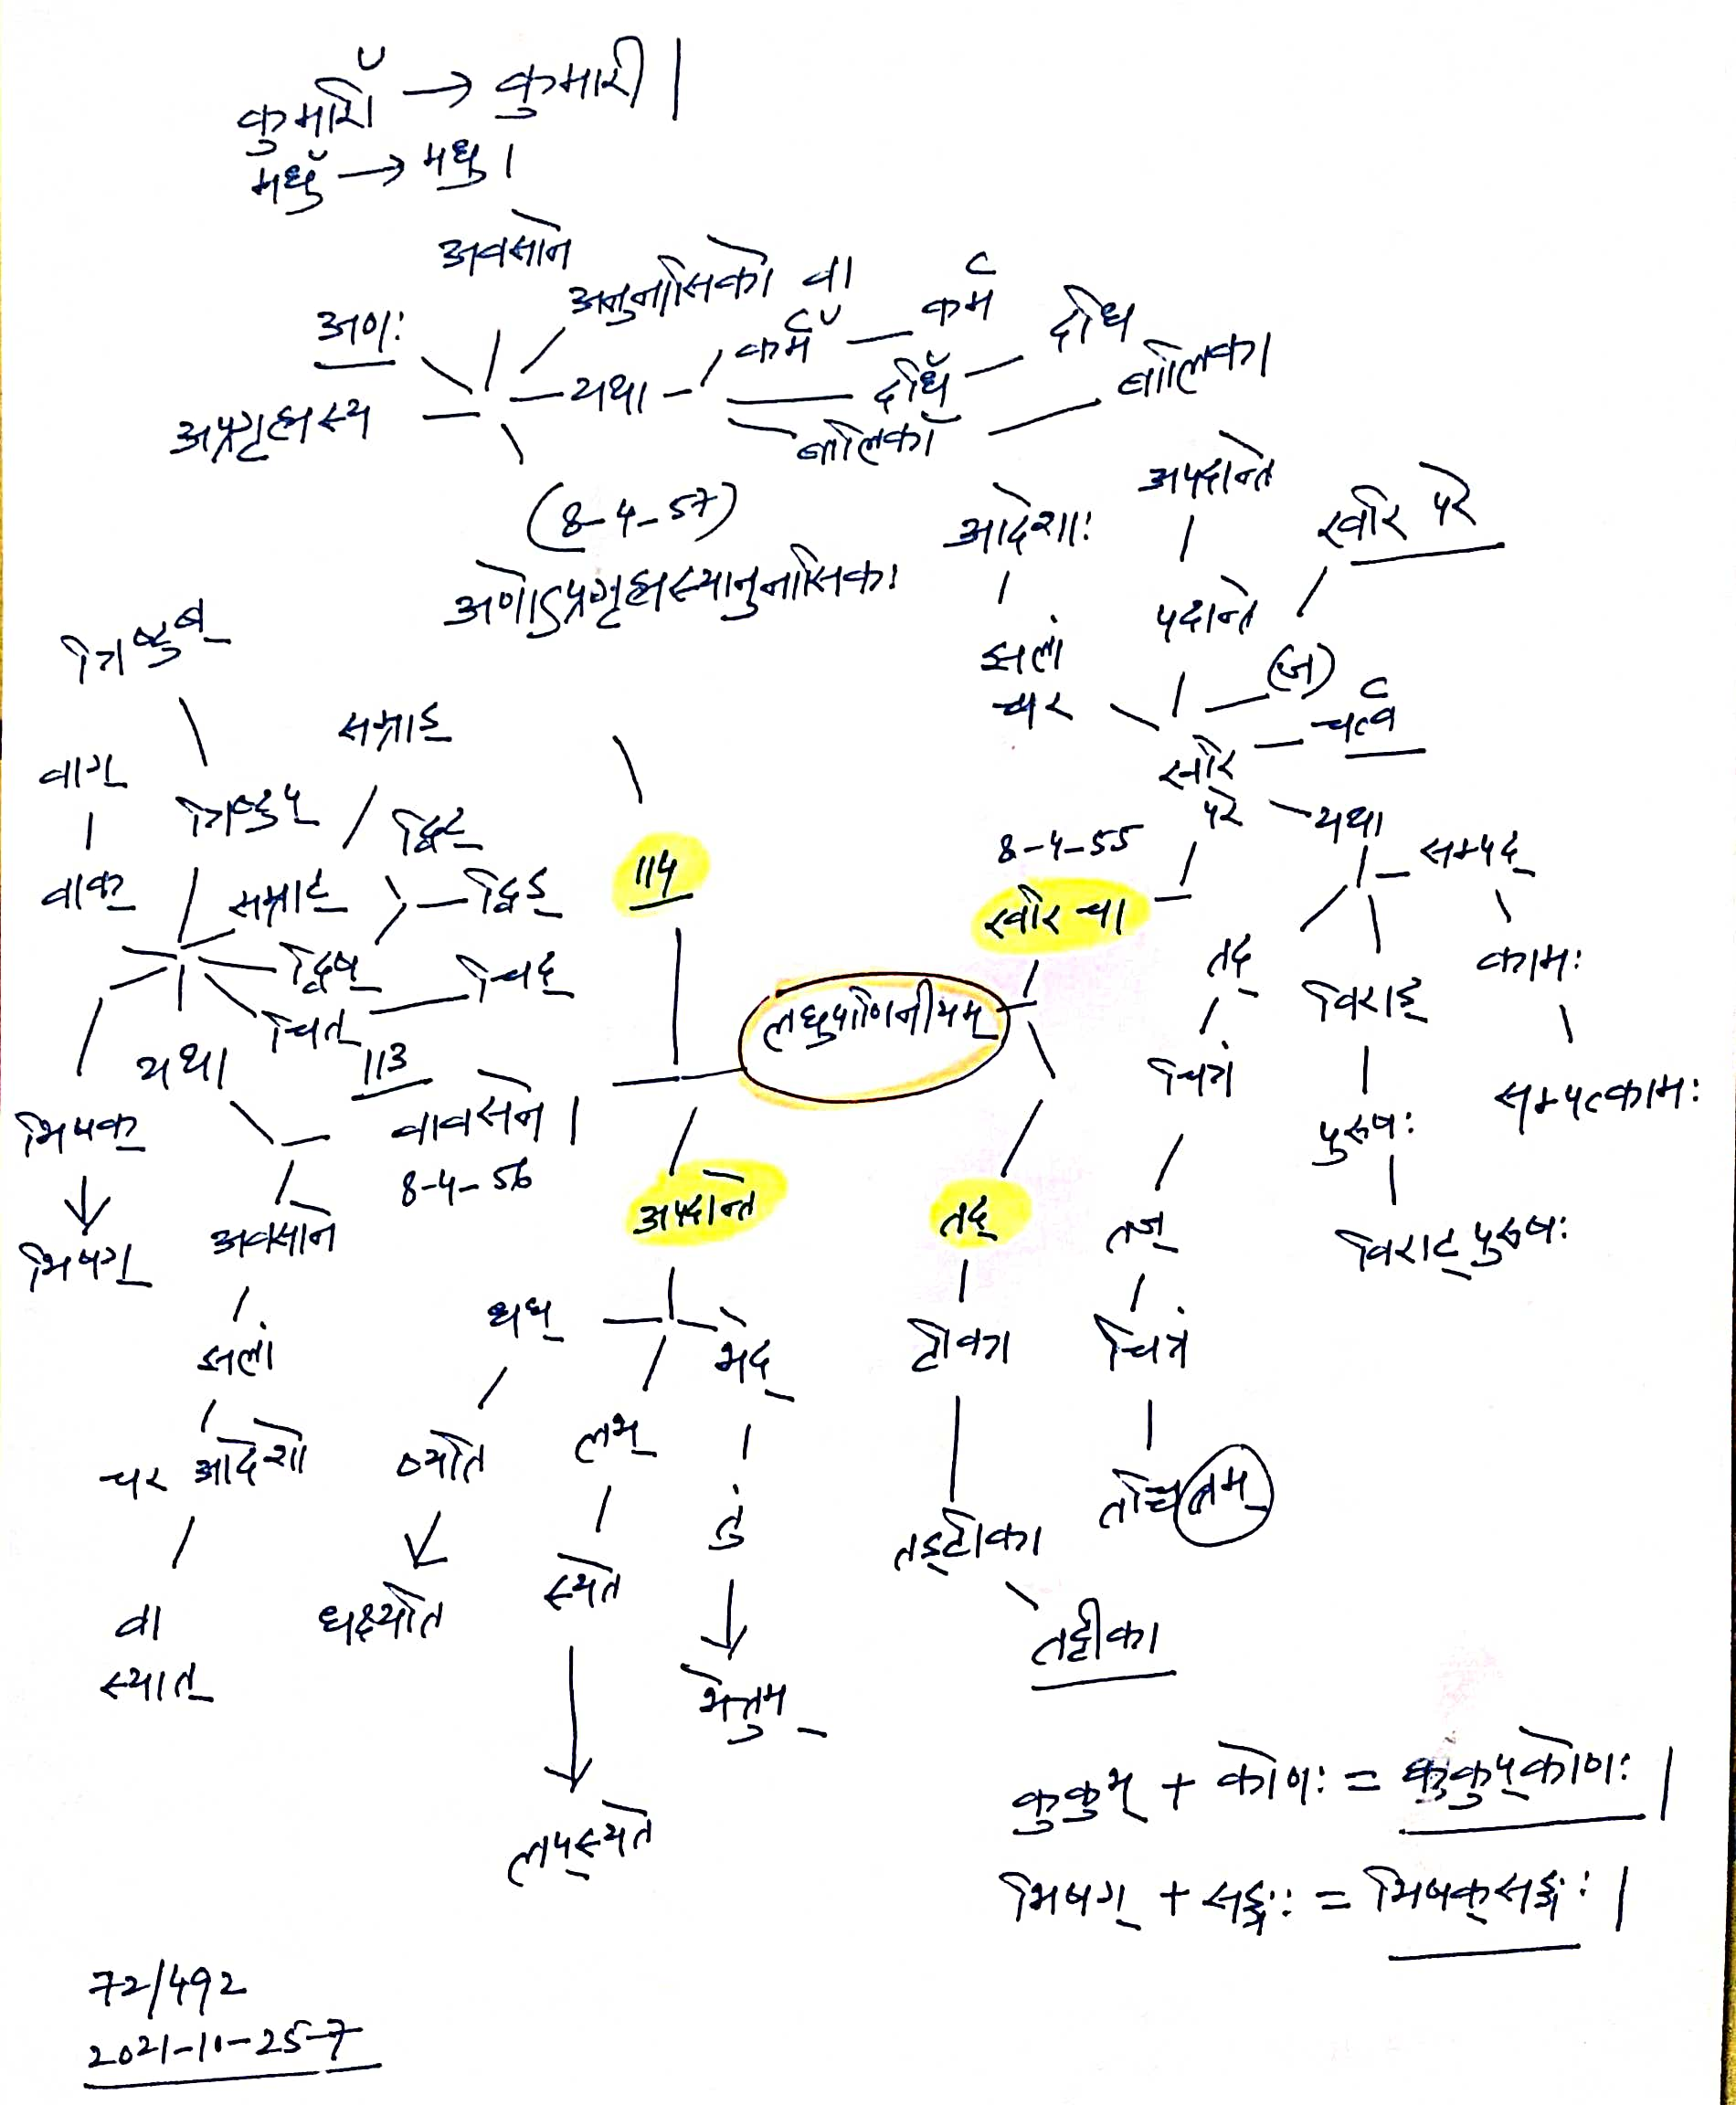 कुमारिँ → कुमारी |
मधुँ → मधु |
अवसाने
अनुनासिको वा
अणः
अप्रगृह्यस्य
यथा
कर्मँ
कर्म
दधिँ
दधि
बालिकाँ
बालिका
(8-4-57)
अणोऽप्रगृह्यस्यानुनासिकः
आदेशाः
झलां
चर
अपदान्ते
पदान्ते
खरि परे
(ज)
चर्त्व
खरि
परे
यथा
सम्पद्
कामः
सम्पत्कामः
विराड्
पुरुषः
विराट्पुरुषः
तद्
चित्रं
तज्
चित्रं
तच्चित्रम्
8-4-55
खरि च।
लघुपाणिनीयम्
तद्
टीका
तड्टीका
तट्टीका
114
113
वावसाने |
8-4-56
यथा
त्रिष्टुब्
त्रिष्टुप्
सम्राड्
सम्राट्
द्विट्
द्विड्
द्विष्
चित्
चिद्
वाग्
वाक्
भिषक्
↓
भिषग्
अवसाने
झलां
चर आदेशो
वा
स्यात्
अपदान्ते
धध्
लभ्
स्यते
लप्स्यते
भेद्
तुं
भेत्तुम्
धक्ष्यति
ककुभ् + कोणः = ककुप्कोणः |
भिषग् + सङ्घः = भिषक्सङ्घः |
72/492
2021-11-25-7